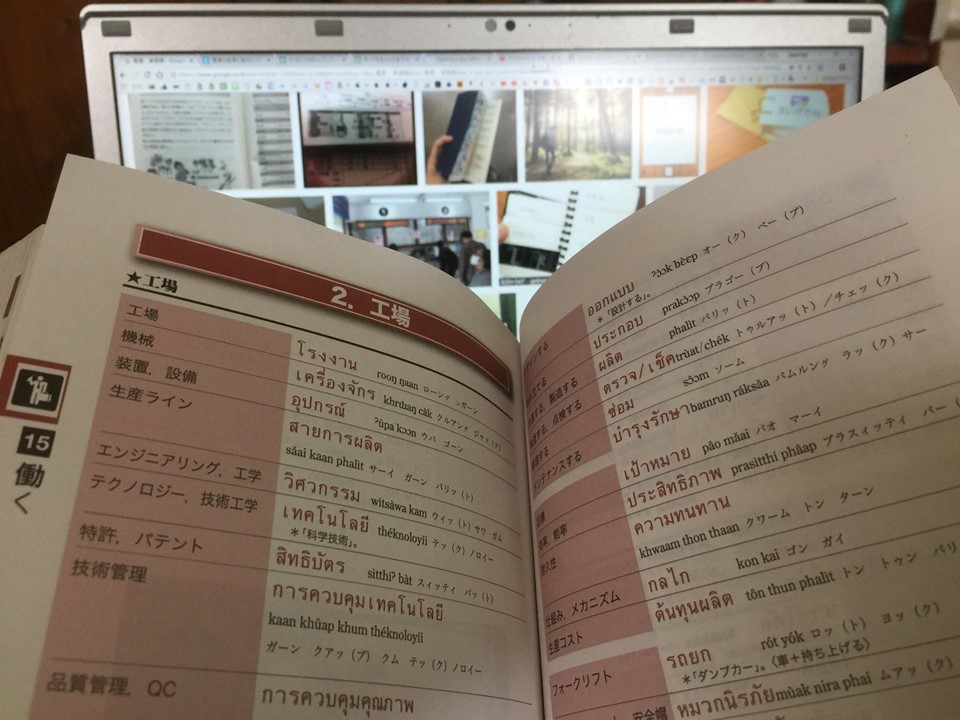 2. 工場
★工場
工場
โรงงาน rooŋ ŋaan ローング ンガーン
機械
เครื่องจักร khrɯ̂aŋ càk クルアング ジャッ（ク）
装置，設備
อุปกรณ์ ʔùpa kɔɔn ウパ ゴーン
生産ライン
สายการผลิต
sǎai kaan phalìt サーイ ガーン パリッ（ト）
エンジニアリング，工学
วิศวกรรม wítsàwa kam ウィッ（ト）サワ ガム
テクノロジー，技術工学
เทคโนโลยี théknoloyii テッ（ク）ノロイー
＊「科学技術」。
特許，パテント
สิทธิบัตร sìtthíʔ bàt スィッティ バッ（ト）
技術管理
การควบคุมเทคโนโลยี
kaan khûap khum théknoloyii
ガーン クアッ（プ） クム テッ（ク）ノロイー
品質管理，QC
การควบคุมคุณภาพ
15
働く
ออกแบบ ʔɔ̀ɔk bɛ̀ɛp オー（ク） ベー（プ）
＊「設計する」。
ประกอบ prakɔ̀ɔp プラゴー（プ）
ผลิต phalìt パリッ（ト）
製造する
ตรวจ/เช็ค trùat/chék トゥルアッ（ト）/チェッ（ク）
点検する
ซ่อม sɔ̂ɔm ソーム
บำรุงรักษา bamruŋ ráksǎa バムルング ラッ（ク）サー
メンテナンスする
เป้าหมาย pâo mǎai パオ マーイ
ประสิทธิภาพ prasìtthí phâap プラスィッティ パー
能率
ความทนทาน
khwaam thon thaan クワーム トン ターン
耐久性
กลไก kon kai ゴン ガイ
仕組み，メカニズム
ต้นทุนผลิต tôn thun phalìt トン トゥン パリッ
生産コスト
รถยก rót yók ロッ（ト） ヨッ（ク）
＊「ダンプカー」。〈車＋持ち上げる〉
フォークリフト
หมวกนิรภัย mùak níra phai ムアッ（ク）
安全帽